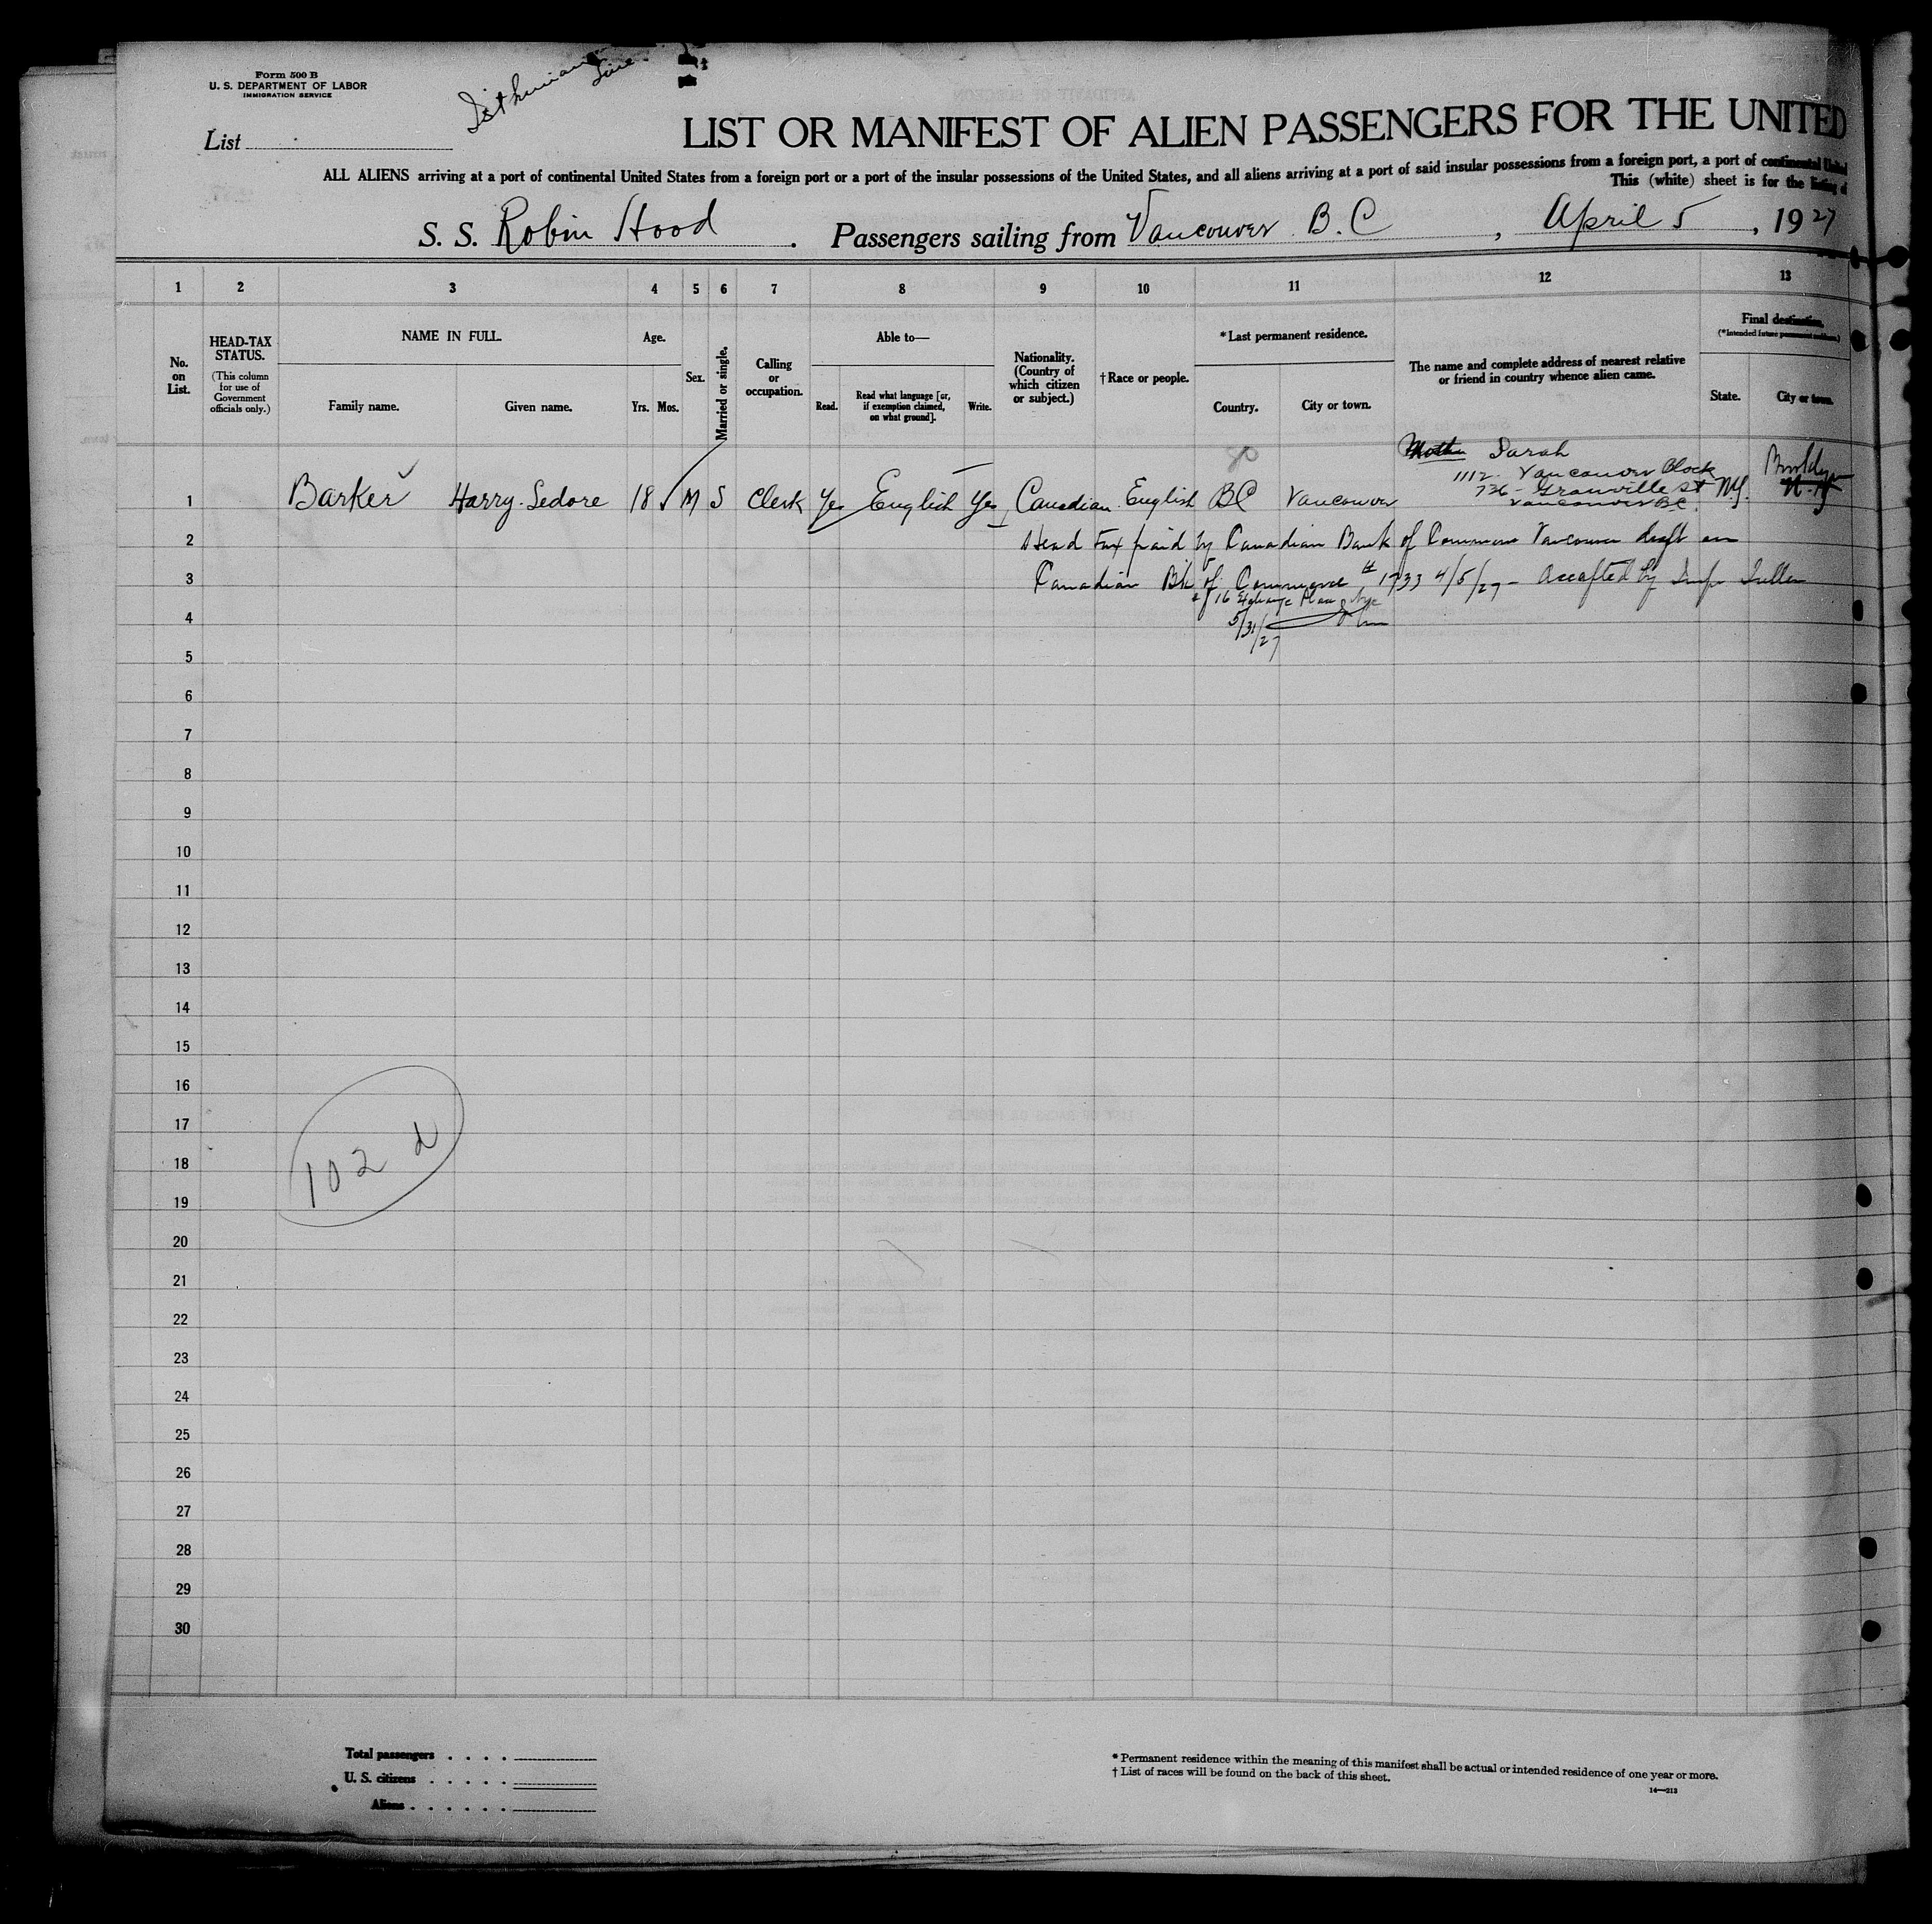 Form 500 B
U. S. DEPARTMENT OF LABOR
IMMIGRATION SERVICE
Isthmian Line
List
LIST OR MANIFEST OF ALIEN PASSENGERS FOR THE UNITED
ALL ALIENS arriving at a port of continental United States from a foreign port or a port of the insular possessions of the United States, and all aliens arriving at a port of said insular possessions from a foreign port, a port of continental United
This (white) sheet is for the listing of
S. S. Robin Hood . Passengers sailing from Vancouver B.C , April 5 , 1927
1 2 3 4 5 6 7 8 9 10 11 12 13
No. on List.
HEAD-TAX STATUS.
(This column for use of Government officials only.)
NAME IN FULL.
Family name. Given name.
Age.
Yrs. Mos.
Sex.
Married or single.
Calling or occupation.
Able to—
Read. Read what language [or, if exemption claimed, on what ground]. Write.
Nationality. (Country of which citizen or subject.)
† Race or people.
* Last permanent residence.
Country. City or town.
The name and complete address of nearest relative or friend in country whence alien came.
Final destination.
(* Intended future permanent residence.)
State. City or town.
80
Mother Sarah
1112 Vancouver Block
736 - Granville St
Vancouver BC.
1 Barker Harry Sedore 18 M S Clerk Yes English Yes Canadian English BC Vancouver N.Y. Brooklyn N.Y
2 Head Tax paid by Canadian Bank of Commerce Vancouver draft on
3 Canadian Bk of Commerce # 1733 4/5/27 - Accepted by
of 16 Exchange Place
4 5/31/27
5
6
7
8
9
10
11
12
13
14
15
16
17
102 d
18
19
20
21
22
23
24
25
26
27
28
29
30
Total passengers . . . .
U. S. citizens . . . . .
Aliens . . . . . .
* Permanent residence within the meaning of this manifest shall be actual or intended residence of one year or more.
† List of races will be found on the back of this sheet.
14—213